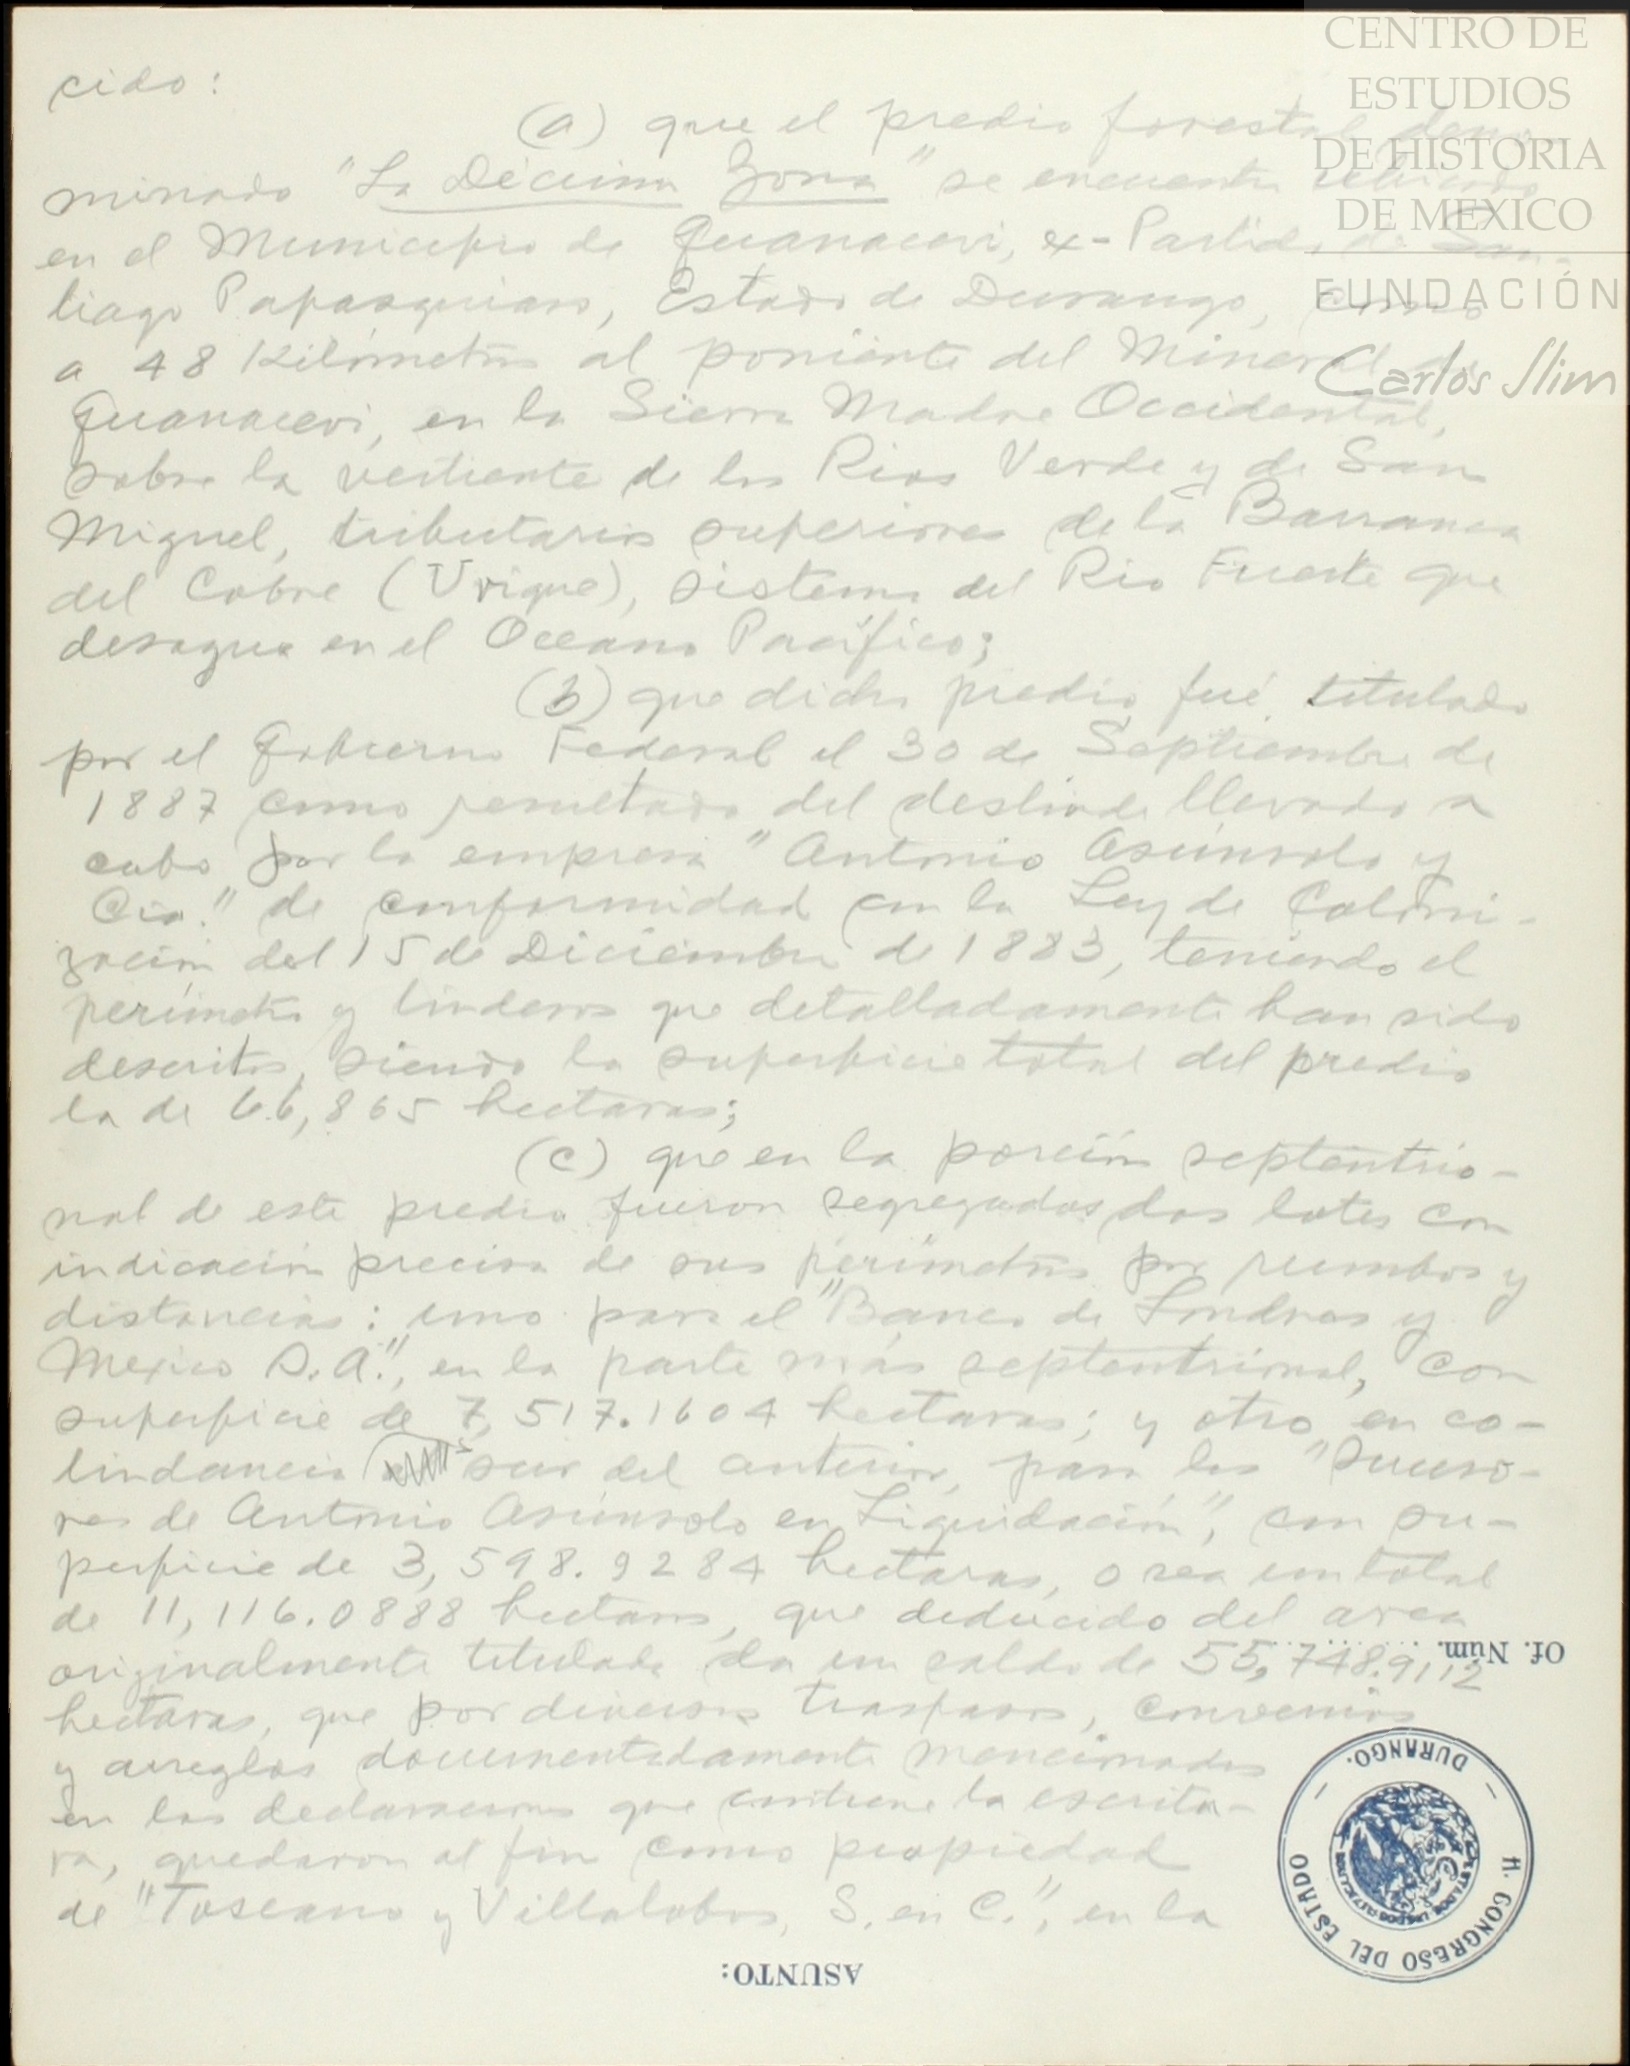 CENTRO DE
ESTUDIOS
DE HISTORIA
DE MEXICO
FUNDACIÓN
Carlos Slim
cido:
(a) que el predio forestal deno-
minado "La Décima Zona" se encuentra ubicado
en el Municipio de Guanacevi, ex-Partido de San-
tiago Papasquiaro, Estado de Durango, como
a 48 Kilómetros al poniente del Mineral de
Guanacevi, en la Sierra Madre Occidental,
sobre la vertiente de los Rios Verde y de San
Miguel, tributarios superiores de la Barranca
del Cobre (Urique), sistema del Rio Fuerte que
desagua en el Oceano Pacífico;
(b) que dicho predio fué titulado
por el Gobierno Federal el 30 de Septiembre de
1887 como resultado del deslinde llevado a
cabo por la empresa "Antonio Asúnsolo y
Cia." de conformidad con la Ley de Coloni-
zación del 15 de Diciembre de 1883, teniendo el
perímetro y linderos que detalladamente han sido
descritos, siendo la superficie total del predio
la de 66,865 hectaras;
(c) que en la porción septentrio-
nal de este predio fueron segregados dos lotes con
indicación precisa de sus perímetros por rumbos y
distancias: uno para el "Banco de Londres y
Mexico S.A.", en la parte más septentrional, con
superficie de 7,517.1604 hectaras; y otro en co-
lindancia sur del anterior, para los "Suceso-
res de Antonio Asúnsolo en Liquidación", con su-
perficie de 3,598.9284 hectaras, o sea un total
de 11,116.0888 hectaras, que deducido del area
originalmente titulada da un saldo de 55,748.9112
hectaras, que por diversos traspasos, convenios
y arreglos documentadamente mencionados
en las declaraciones que contiene la escritu-
ra, quedaron al fin como propiedad
de "Toscano y Villalobos, S. en C.", en la
Of. Núm.
H. CONGRESO DEL ESTADO
DURANGO.
ASUNTO: